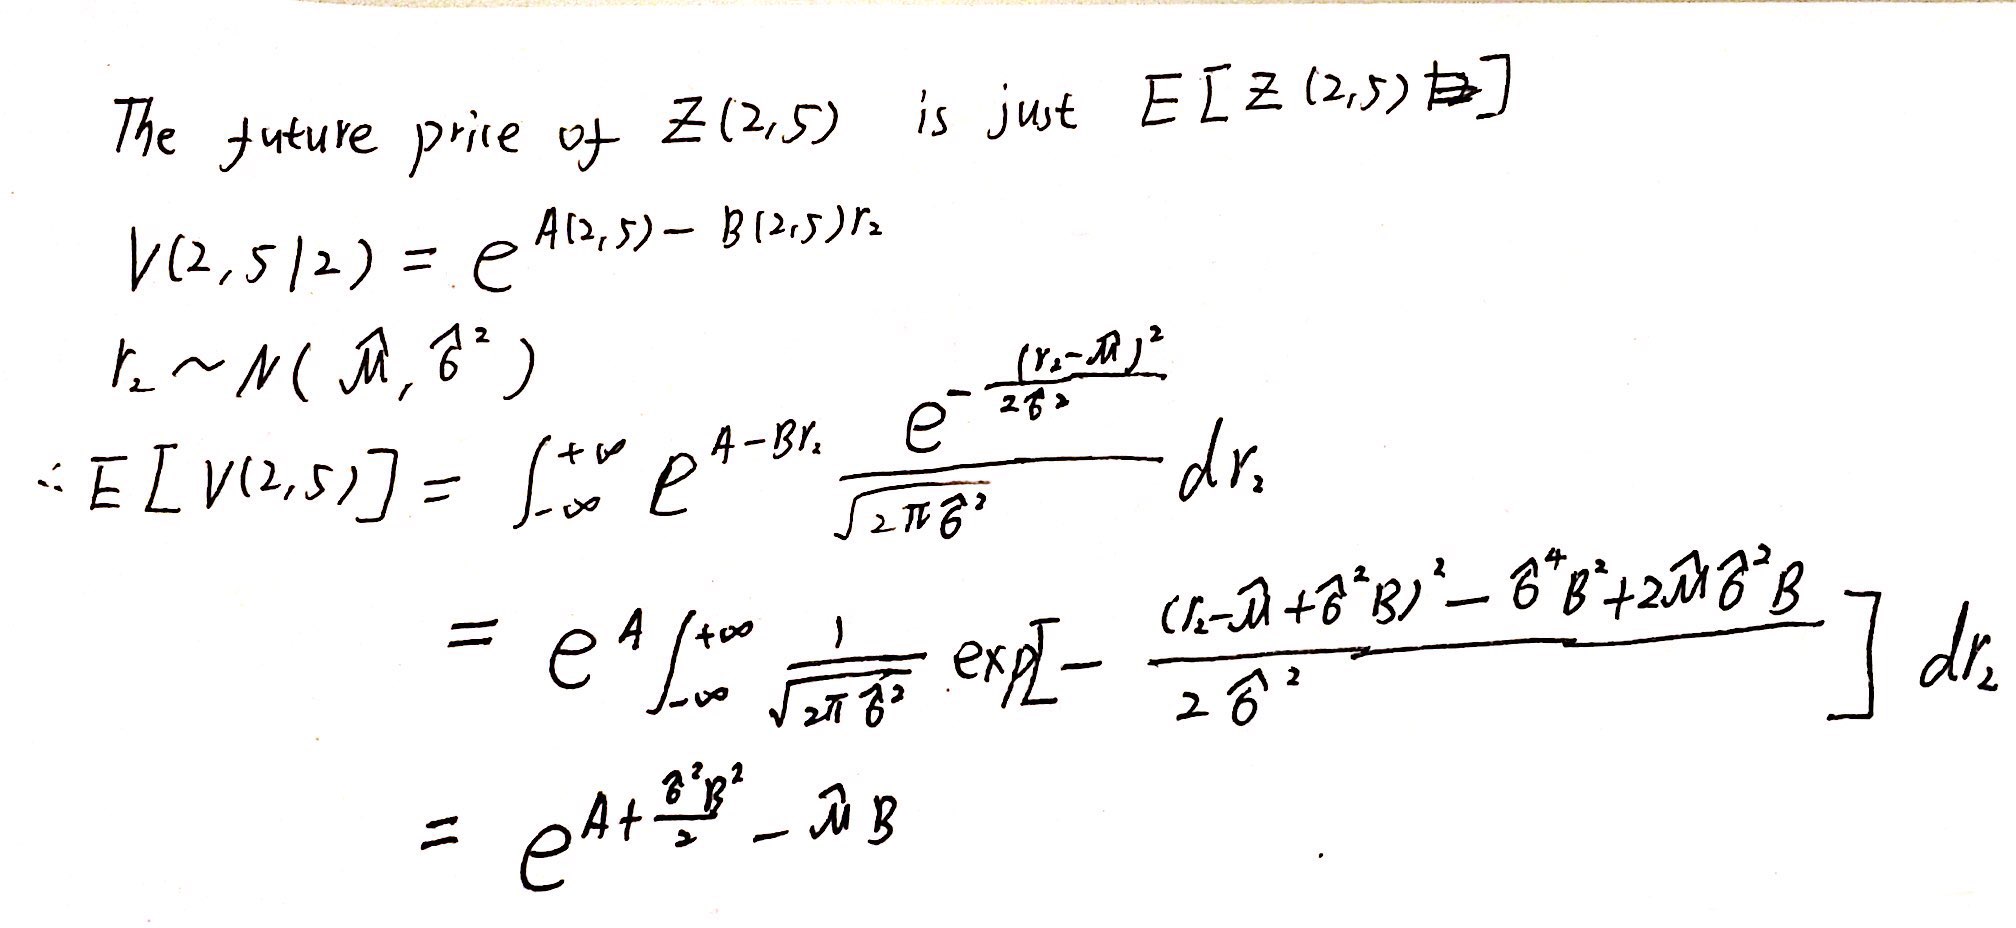 The future price of Z(2,5) is just E[Z(2,5)]
V(2,5|2) = e^{A(2,5) - B(2,5)r₂}
r₂ ~ N(μ̂, σ̂²)
∴ E[V(2,5)] = ∫_{-∞}^{+∞} e^{A-Br₂} \frac{e^{-\frac{(r₂-μ̂)²}{2σ̂²}}}{\sqrt{2πσ̂²}} dr₂
= e^A ∫_{-∞}^{+∞} \frac{1}{\sqrt{2πσ̂²}} exp[-\frac{(r₂-μ̂+σ̂²B)² - σ̂⁴B² + 2μ̂σ̂²B}{2σ̂²}] dr₂
= e^{A+\frac{σ̂²B²}{2} - μ̂B}